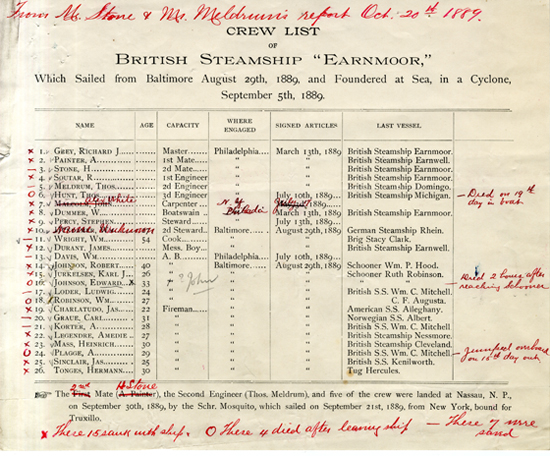 From M. Stone & Mr. Meldrum's report Oct. 20th 1889.
CREW LIST
OF
BRITISH STEAMSHIP "EARNMOOR,"
Which Sailed from Baltimore August 29th, 1889, and Foundered at Sea, in a Cyclone,
September 5th, 1889.
NAME AGE CAPACITY WHERE ENGAGED SIGNED ARTICLES LAST VESSEL
x 1. GREY, RICHARD J. Master Philadelphia March 13th, 1889 British Steamship Earnmoor.
x 2. PAINTER, A. 1st Mate " " British Steamship Earnwell.
— 3. STONE, H. 2d Mate " " British Steamship Earnmoor.
x 4. SOUTAR, R. 1st Engineer " " British Steamship Earnmoor.
— 5. MELDRUM, THOS. 2d Engineer " " British Steamship Domingo.
O 6. HUNT, THOS. 3d Engineer " July 10th, 1889 British Steamship Michigan. — Died on 19th day in boat
x 7. Alex White Carpenter N.Y.
x 8. DUMMER, W. Boatswain March 13th, 1889 British Steamship Earnmoor.
x 9. PERCY, STEPHEN Steward " July 13th, 1889
x 10. 2d Steward Baltimore August 29th, 1889 German Steamship Rhein.
— 11. WRIGHT, WM. 54 Cook " " Brig Stacy Clark.
x 12. DURANT, JAMES Mess. Boy " " British Steamship Earnwell.
— 13. DAVIS, WM. A. B. Philadelphia July 10th, 1889
x 14. JOHNSON, ROBERT 40 " Baltimore August 29th, 1889 Schooner Wm. P. Hood.
x 15. JURKELSEN, KARL J. 26 " " " Schooner Ruth Robinson.
O 16. JOHNSON, EDWARD x 33 x ? John " " " " — Died 2 hours after reaching schooner
— 17. LODER, LUDWIG 24 " " " British S.S. Wm. C. Mitchell
O 18. ROBINSON, WM. 27 " " " C. F. Augusta.
x 19. CHARLATUDO, JAS 22 Fireman " " American S.S. Alleghany.
— 20. GRAUE, CARL 31 " " " Norwegian S.S. Albert.
— 21. KORTER, A. 28 " " " British S.S. Wm. C. Mitchell
x 22. LEGENDRE, AMEDIE 27 " " " British Steamship Nessmore.
x 23. MASS, HEINRICH 30 " " " British Steamship Cleveland.
O 24. PLAGGE, A. 29 " " " British S.S. Wm. C. Mitchell — Jumped overboard on 15th day out
x 25. SINCLAIR, JAS 25 " " " British S.S. Kenilworth.
x 26. TONGES, HERMANN 30 " " " Tug Hercules.
2nd H Stone
The First Mate (A. Painter), the Second Engineer (Thos. Meldrum), and five of the crew were landed at Nassau, N. P.,
on September 30th, 1889, by the Schr. Mosquito, which sailed on September 21st, 1889, from New York, bound for
Truxillo.
x These 15 sank with ship. O These 4 died after leaving ship — These 7 were saved